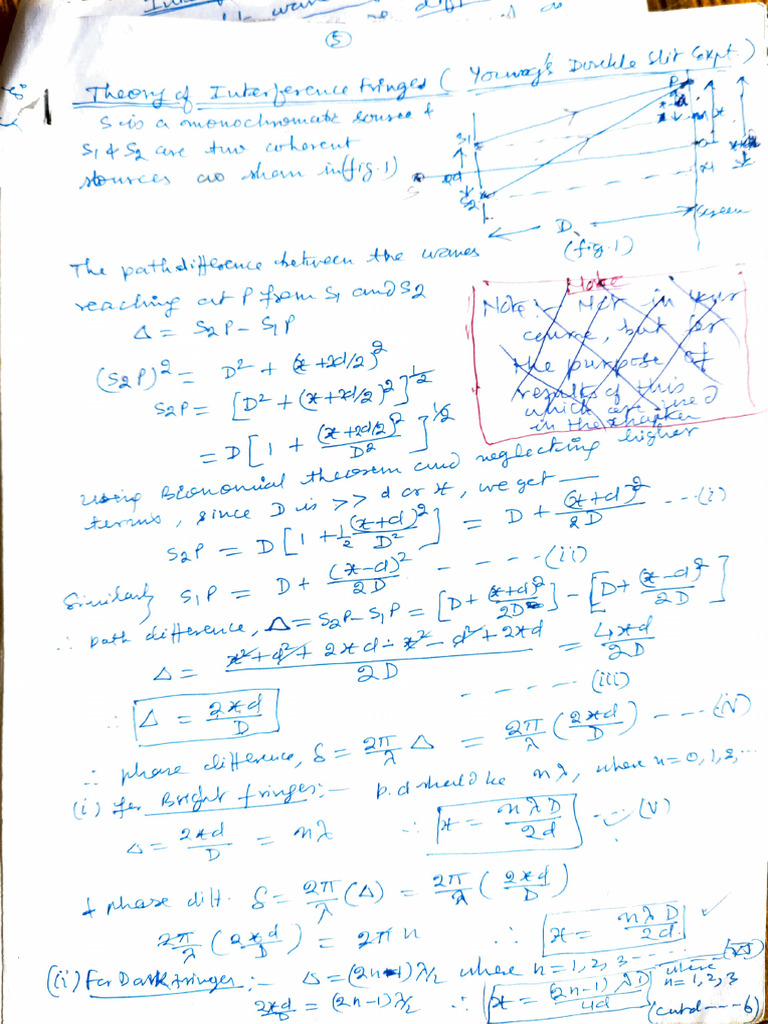 ⑤
Theory of Interference Fringes (Young's Double Slit Expt.)
S is a monochromatic source &
S1 & S2 are two coherent
sources as shown in (fig. 1)
P
S1
S
S2
D
screen
(fig. 1)
The path difference between the waves
reaching at P from S1 and S2
Δ = S2P - S1P
Note
Note :- Not in your
course, but for
the purpose of
results of this
which are used
in the chapter
(S2P)² = D² + (x + 2d/2)²
S2P = [D² + (x + 2d/2)²]^1/2
= D [1 + (x + 2d/2)²/D²]^1/2
using Bionomial theorem and neglecting higher
terms, since D is >> d or x, we get —
S2P = D [1 + 1/2 (x+d)²/D²] = D + (x+d)²/2D --- (i)
Similarly S1P = D + (x-d)²/2D - - - - - (ii)
∴ path difference, Δ = S2P - S1P = [D + (x+d)²/2D] - [D + (x-d)²/2D]
Δ = x² + d² + 2xd - x² - d² + 2xd / 2D = 4xd/2D
∴ Δ = 2xd/D - - - - - (iii)
∴ phase difference, δ = 2π/λ Δ = 2π/λ (2xd/D) - - - (iv)
(i) for Bright fringes :- p.d should be nλ, where n = 0, 1, 2, ...
Δ = 2xd/D = nλ ∴ x = nλD/2d --- (v)
& phase diff. δ = 2π/λ (Δ) = 2π/λ (2xd/D)
2π/λ (2xd/D) = 2πn ∴ x = nλD/2d ✓
(ii) For Dark fringes :- Δ = (2n-1)λ/2 where n = 1, 2, 3 ----- (vi)
2xd/D = (2n-1)λ/2 ∴ x = (2n-1)λD/4d where n = 1, 2, 3
(contd --- 6)